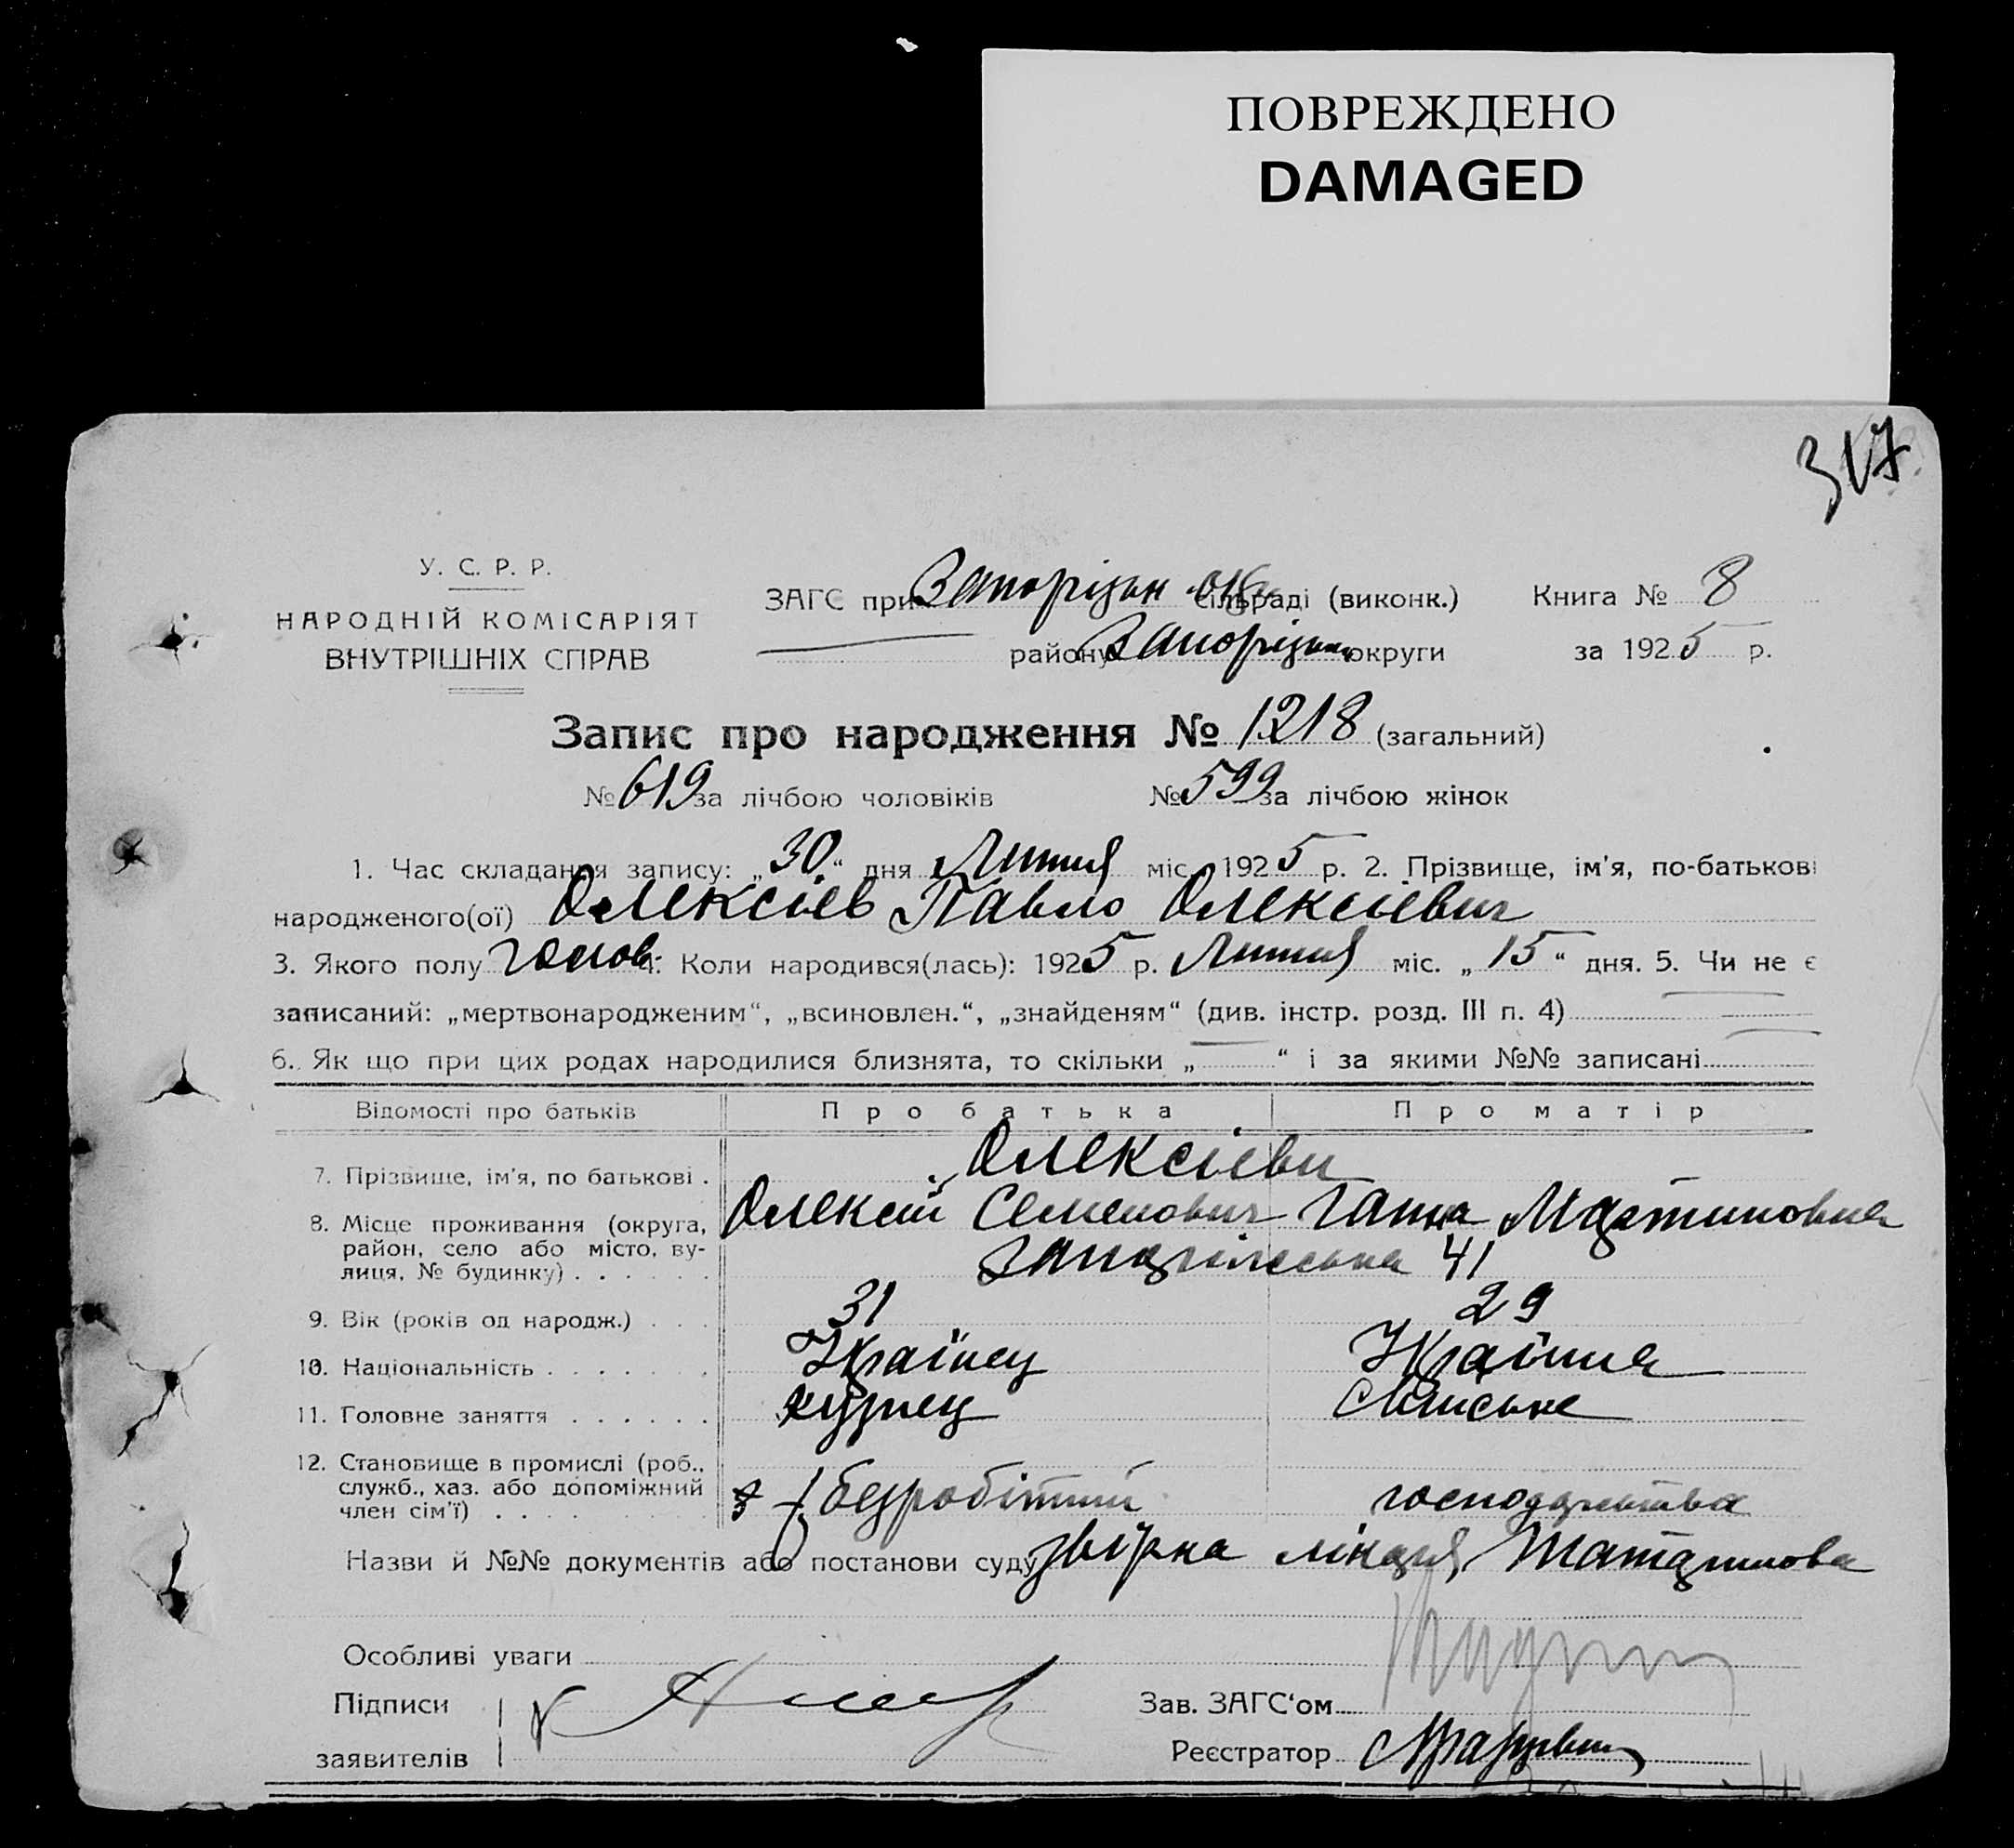 ПОВРЕЖДЕНО
DAMAGED
317
У. С. Р. Р.
НАРОДНІЙ КОМІСАРІЯТ
ВНУТРІШНІХ СПРАВ
ЗАГС при Запорізьк. сільраді (виконк.) Книга № 8
району Запорізьк округи за 1925 р.
Запис про народження № 1218 (загальний)
№ 619 за лічбою чоловіків № 599 за лічбою жінок
1. Час складання запису: „30“ дня Липня міс. 1925 р. 2. Прізвище, ім'я, по-батькові
народженого(ої) Олексієв Павло Олексієвич
3. Якого полу чолов. 4. Коли народився(лась): 1925 р. Липня міс. „15“ дня. 5. Чи не є
записаний: „мертвонародженим“, „всиновлен.“, „знайденям“ (див. інстр. розд. III п. 4)
6. Як що при цих родах народилися близнята, то скільки „ “ і за якими №№ записані
Відомості про батьків Про батька Про матір
7. Прізвище, ім'я, по батькові . Олексієви
Олексій Семенович Ганна Мартиновна
8. Місце проживання (округа,
район, село або місто, ву-
лиця, № будинку) . . . . . . 41
9. Вік (років од народж.) . . . 31 29
10. Національність . . . . . . . Українец Українка
11. Головне заняття . . . . . . кузнец хатське
12. Становище в промислі (роб.,
служб., хаз. або допоміжний
член сім'ї) . . . . безробітний господарства
Назви й №№ документів або постанови суду звірка лікаря
Особливі уваги
Підписи
заявителів
Зав. ЗАГС‘ом
Реєстратор